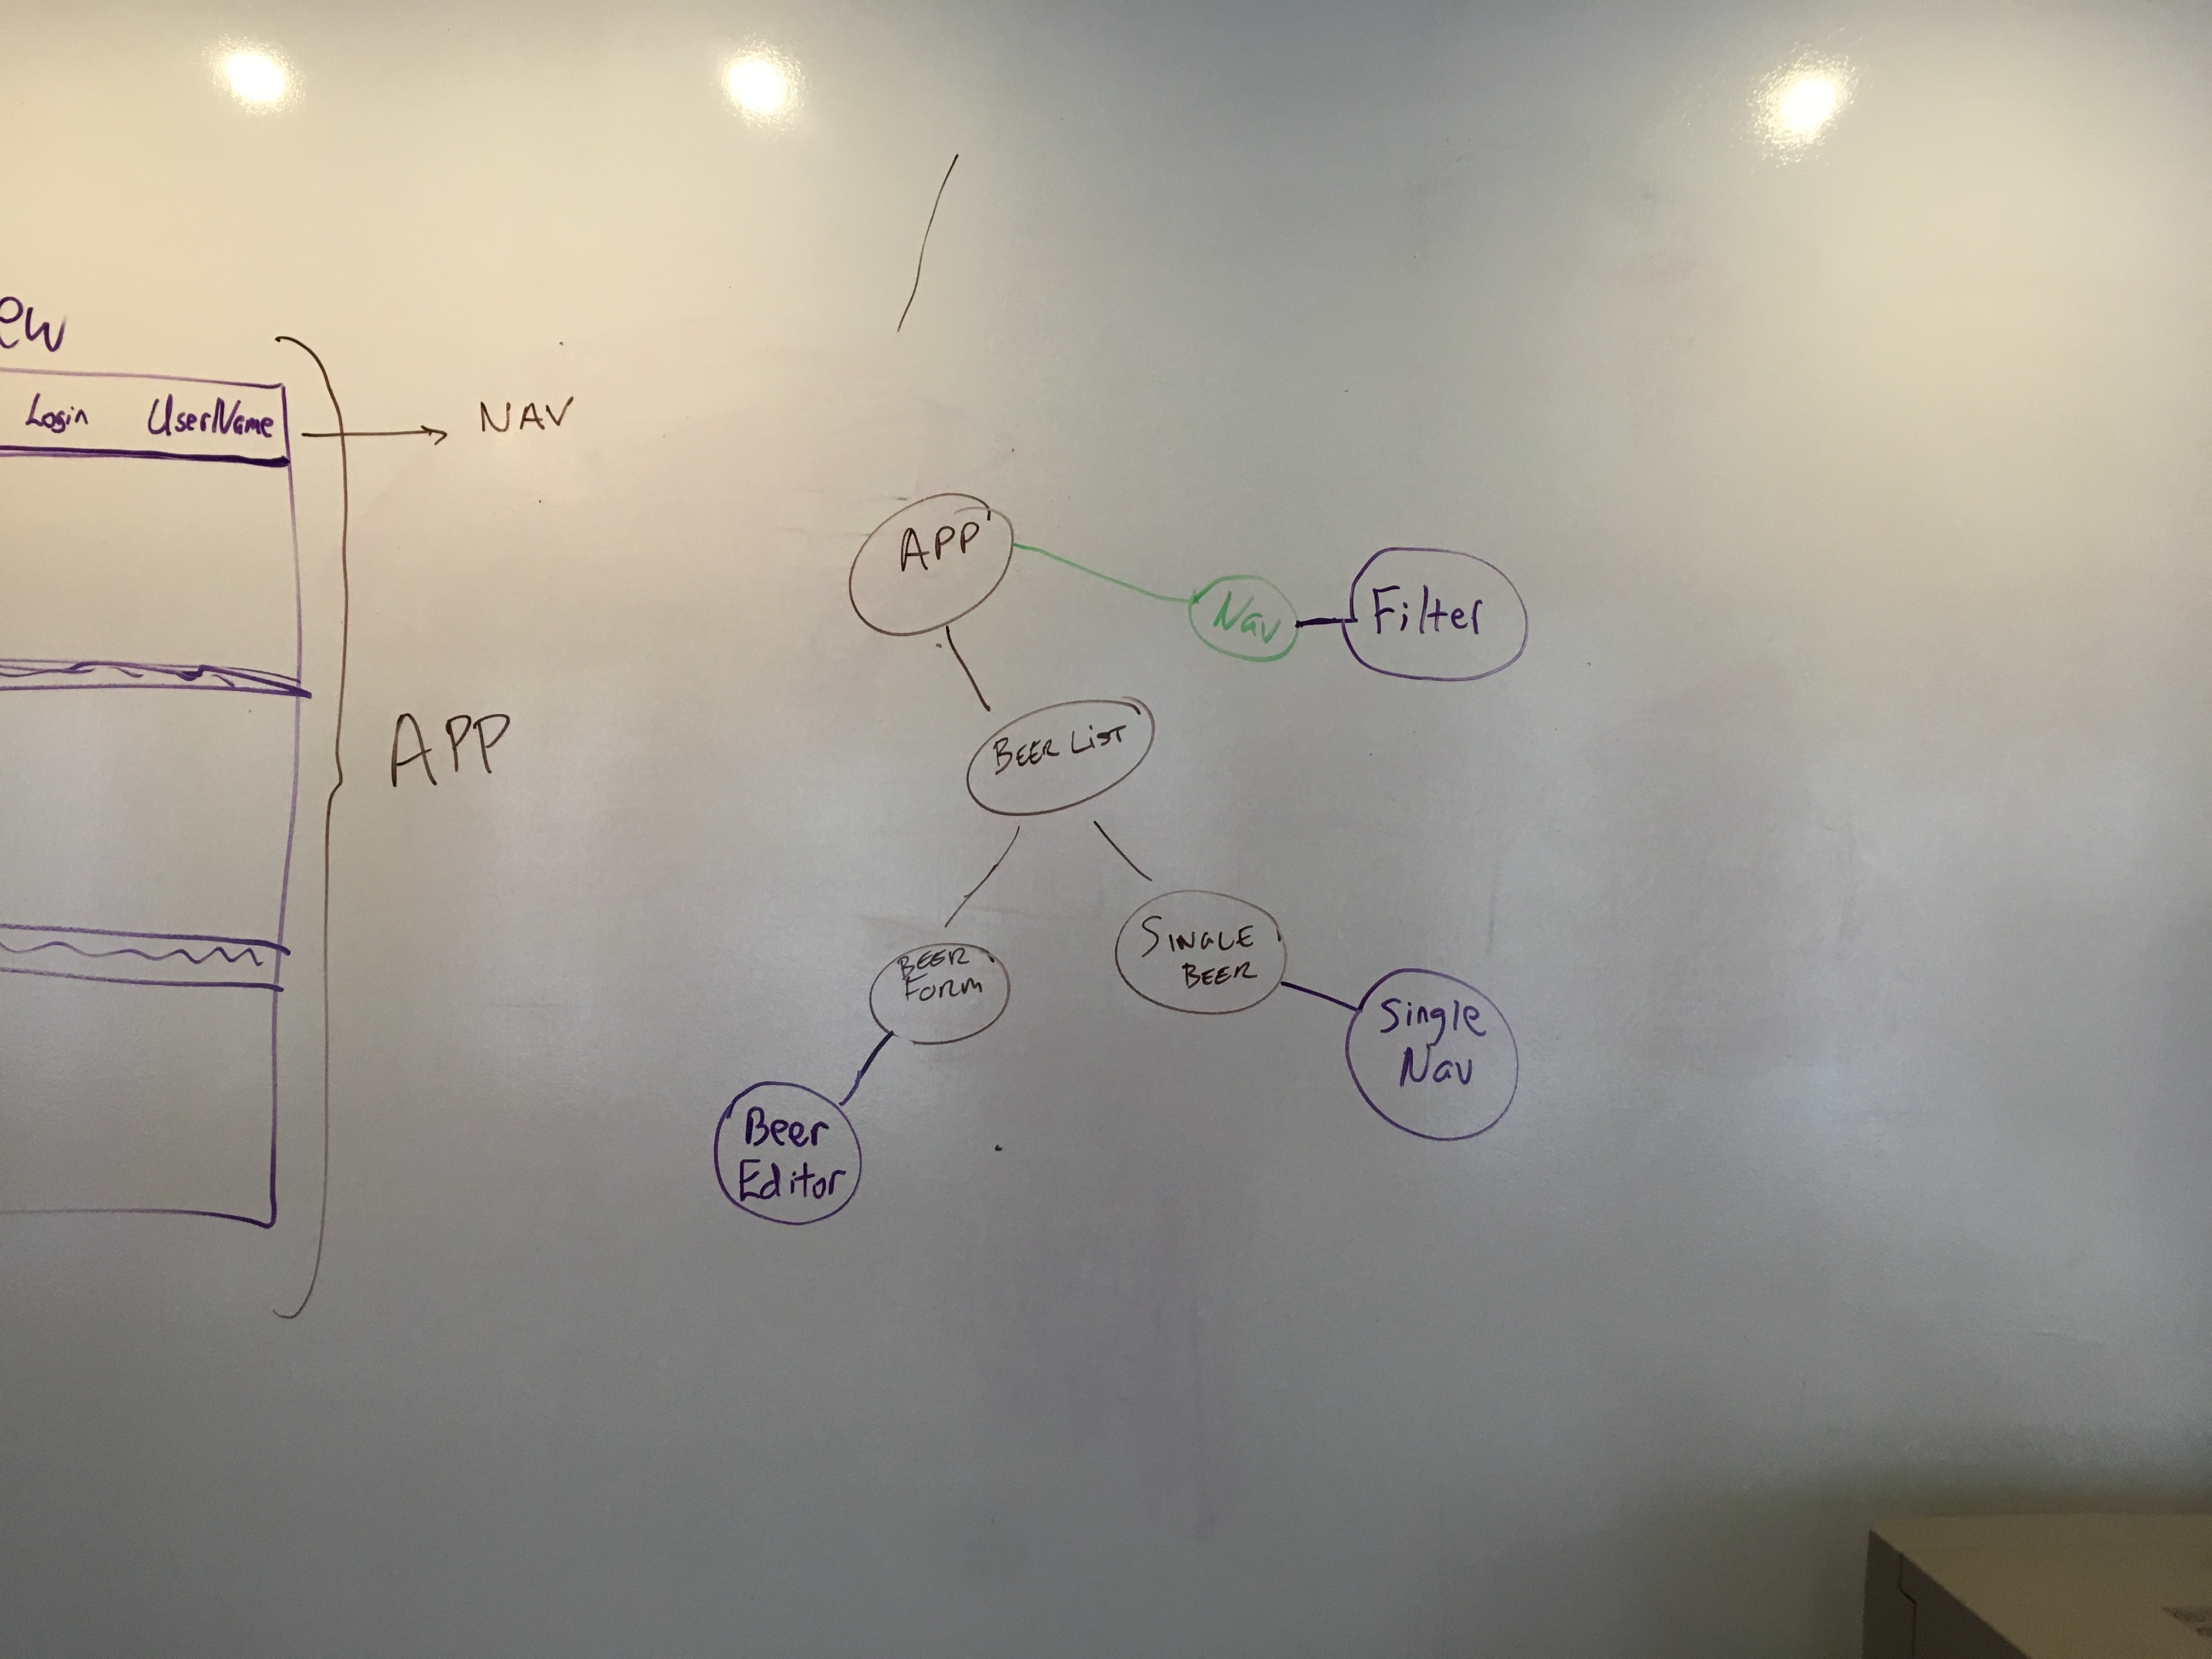 ew
Login UserName
NAV
APP
APP
Nav
Filter
BEER LIST
BEER
FORM
SINGLE
BEER
Single
Nav
Beer
Editor